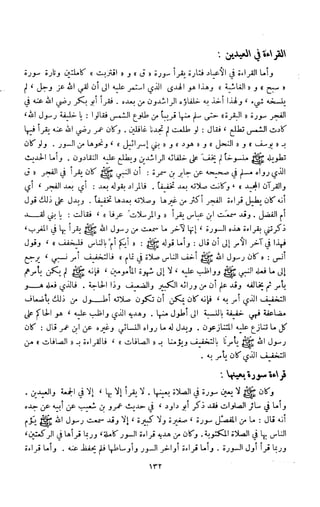 القراءة في العيدين :
وأما القراءة في الأعياد فتارة يقرأ « ق » و « اقتربت » كاملتين وتارة سورة
« سبح » و « الغاشية » وهذا هو الهدى الذي استمر عليه إلى أن لقى الله عز وجل ، لم
ينسخه شيء ، ولهذا أخذ به خلفاؤه الراشدون من بعده . فقرأ أبو بكر رضي الله عنه في
الفجر سورة «البقرة» حتى سلم منها قريباً من طلوع الشمس فقالوا : يا خليفة رسول الله،
كادت الشمس تطلع ، فقال : لو طلعت لم تجدنا غافلين . وكان عمر رضي الله عنه يقرأ فيها
ب « يوسف » و « النحل » و « هود » و « بني إسرائيل » ونحوها من السور ، ولو كان
تطويله ﷺ منسوخاً لم يخف على خلفائه الراشدين ويطلع عليه النقادون . وأما الحديث
الذي رواه مسلم في صحيحه عن جابر بن سمرة : أن النبي ﷺ كان يقرأ في الفجر « ق
والقرآن المجيد » ، وكانت صلاته بعد تخفيفاً . فالمراد بقوله بعد : أي بعد الفجر ، أي
إنه كان يطيل قراءة الفجر أكثر من غيرها وصلاته بعدها تخفيفاً . ويدل على ذلك قول
أم الفضل . وقد سمعت ابن عباس يقرأ «والمرسلات عرفا » فقالت : يا بنى لقـــد
ذكرتني بقراءة هذه السورة ، إنها لآخر ما سمعت من رسول الله ﷺ يقرأ بها في المغرب»
فهذا في آخر الأمر إلى أن قال : وأما قوله ﷺ : « أيكم أم بالناس فليخفف » ، وقول
أنس : « كان رسول الله ﷺ أخف الناس صلاة في تمام » فالتخفيف أمر نسبي ، يرجع
إلى ما فعله النبي ﷺ وواظب عليه ، لا إلى شهوة المأمومين ، فإنه ﷺ لم يكن يأمرهم
بأمر ثم يخالفه وقد علم أن من ورائه الكبير والضعيف وذا الحاجة . فالذي فعله هـــو
التخفيف الذي أمر به ، فإنه كان يمكن أن تكون صلاته أطـــول من ذلك بأضعاف
مضاعفة فهي خفيفة بالنسبة إلى أطول منها . وهديه الذي واظب عليه ، هو الحاكم على
كل ما تنازع عليه المتنازعون . ويدل له ما رواه النسائي وغيره عن ابن عمر قال : كان
رسول الله ﷺ يأمرنا بالتخفيف ويؤمنا بـ « الصافات » ، فالقراءة بـ « الصافات » من
التخفيف الذي كان يأمر به .
قراءة سورة بعينها :
وكان ﷺ لا يعين سورة في الصلاة بعينها . لا يقرأ إلا بها ، إلا في الجمعة والعيدين .
وأما في سائر الصلوات فقد ذكر أبو داود ، في حديث عمرو بن شعيب عن أبيه عن جده
أنه قال : ما من المفصل سورة ، صغيرة ولا كبيرة ، إلا وقد سمعت رسول الله ﷺ يؤم
الناس بها في الصلاة المكتوبة. وكان من هديه قراءة السور كاملة، وربما قرأها في الركعتين،
وربما قرأ أول السورة . وأما قراءة أواخر السور وأوساطها فلم يحفظ عنه . وأما قراءة
١٣٢